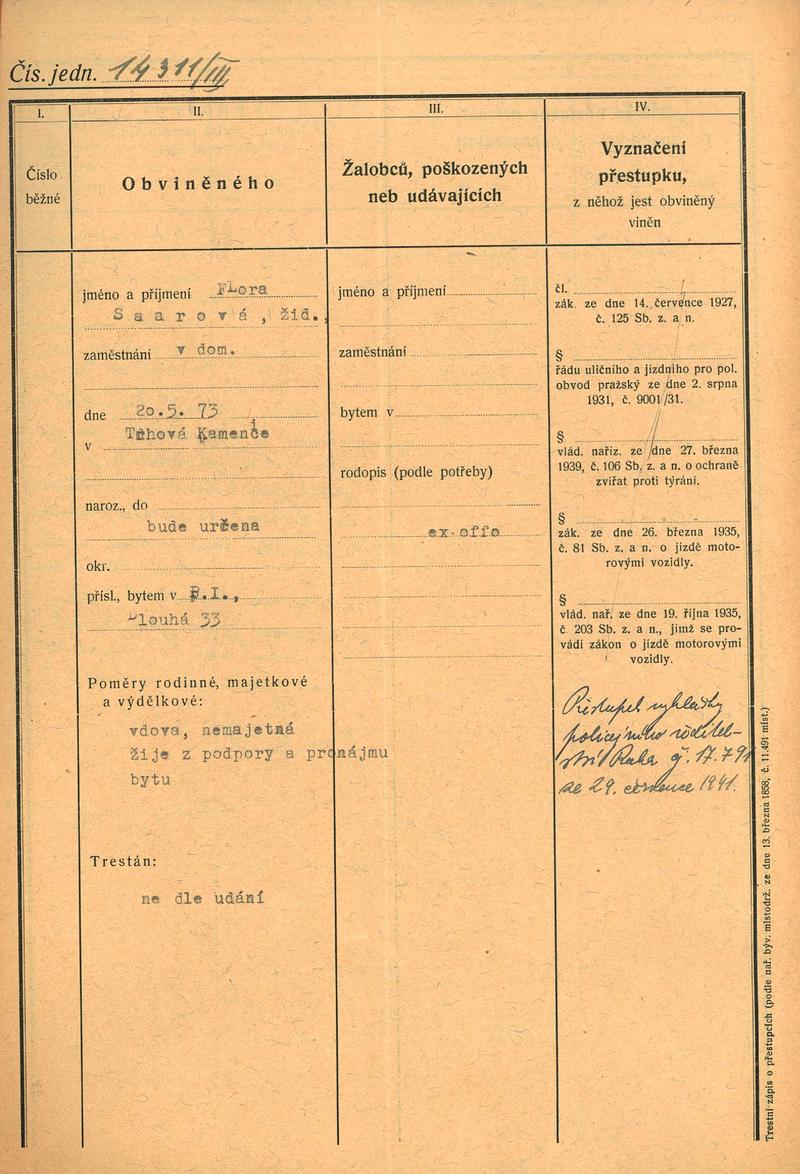 Čís. jedn. 14311/III
I.
II.
III.
IV.
Číslo
běžné
Obviněného
Žalobců, poškozených
neb udávajících
Vyznačení
přestupku,
z něhož jest obviněný
viněn
jméno a příjmení Flora
Saarová, žid.,
zaměstnání v dom.
dne 20.5. 73
v Kamence
naroz., do
bude určena
okr.
přísl., bytem v P.I.,
Dlouhá 33
Poměry rodinné, majetkové
a výdělkové:
vdova, nemajetná
žije z podpory a pronájmu
bytu
Trestán:
ne dle udání
jméno a příjmení
zaměstnání
bytem v
rodopis (podle potřeby)
ex offo
čl.
zák. ze dne 14. července 1927,
č. 125 Sb. z. a n.
§
řádu uličního a jízdního pro pol.
obvod pražský ze dne 2. srpna
1931, č. 9001/31.
§
vlád. naříz. ze dne 27. března
1939, č. 106 Sb. z. a n. o ochraně
zvířat proti týrání.
§
zák. ze dne 26. března 1935,
č. 81 Sb. z. a n. o jízdě moto-
rovými vozidly.
§
vlád. nař. ze dne 19. října 1935,
č. 203 Sb. z. a n., jímž se pro-
vádí zákon o jízdě motorovými
vozidly.
Přestupek vyhlášky
policejního ředitel-
ství Praha č. 17.791
ze 29. července 1941.
Trestní zápis o přestupcích (podle nař. býv. místodrž. ze dne 13. března 1858, č. 11.491 míst.)